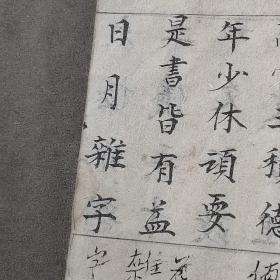 主積德
年少休頑要
是書皆有益
日月雜字
雜
字